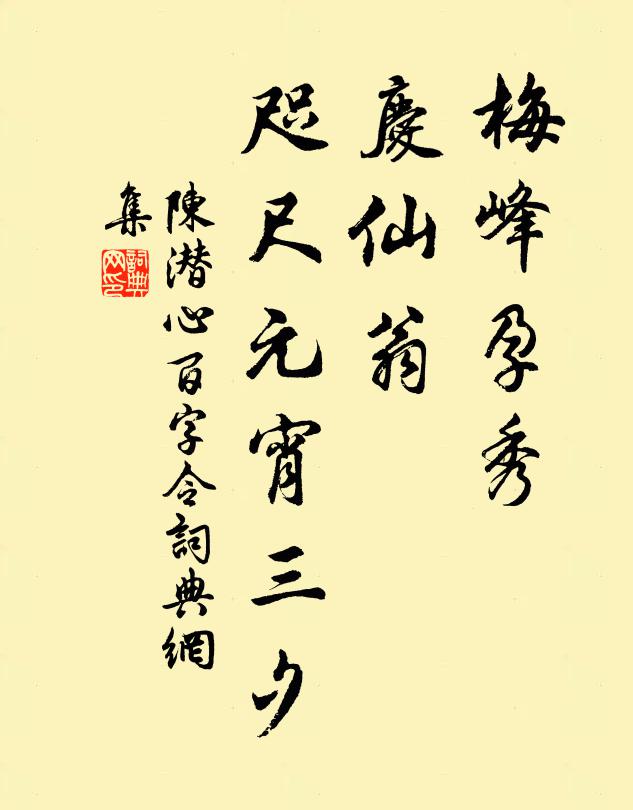 梅峰孕秀
慶仙翁
咫尺元宵三夕
陳潜心百字令詞典網
集
詞典
网印